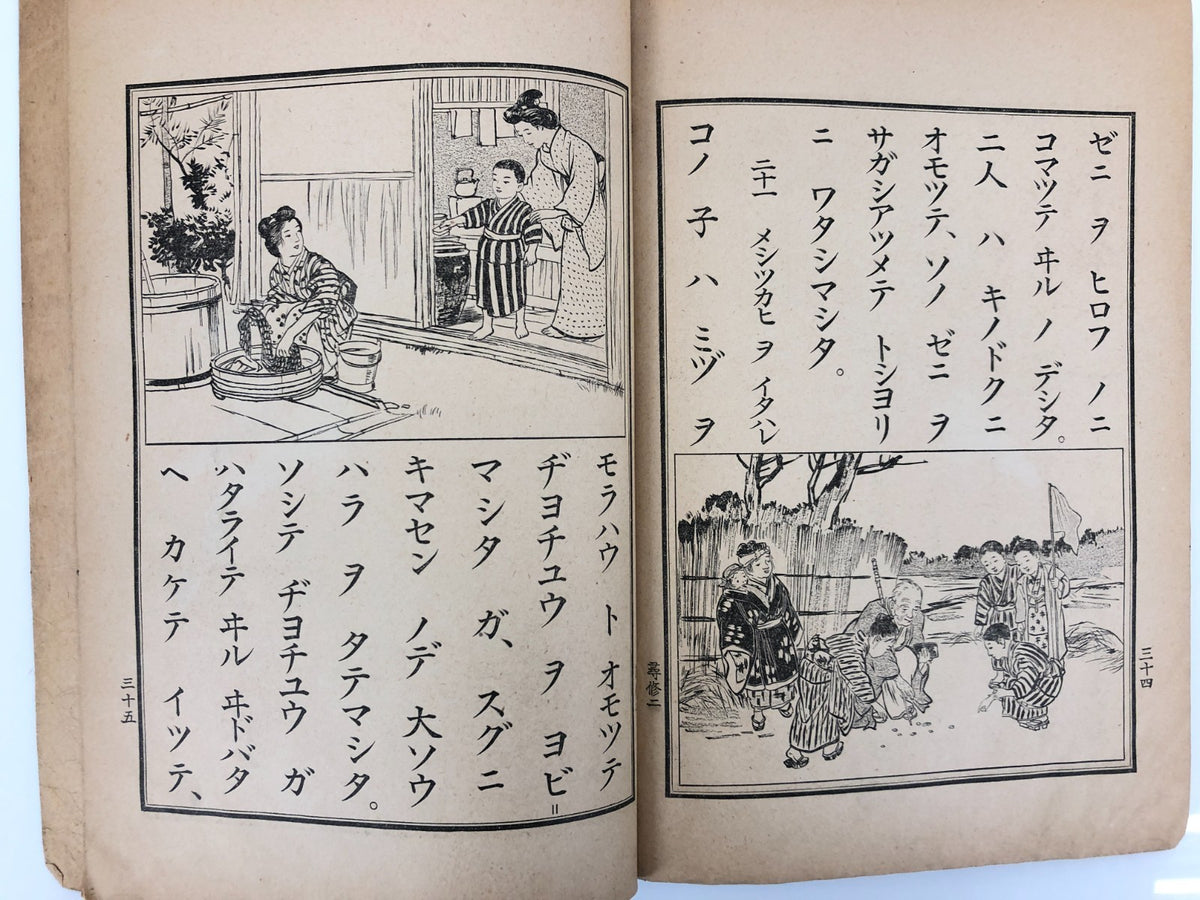 ゼニ ヲ ヒロフ ノニ
コマツテ ヰル ノ デシタ。
二人 ハ キノドクニ
オモツテ、ソノ ゼニ ヲ
サガシアツメテ トシヨリ
ニ ワタシマシタ。
二十一 メシツカヒ ヲ イタハレ
コノ 子 ハ ミヅ ヲ
三十四
尋修二
モラハウ ト オモツテ
ヂヨチユウ ヲ ヨビ＝
マシタ ガ、スグニ
キマセン ノデ 大ソウ
ハラ ヲ タテマシタ。
ソシテ ヂヨチユウ ガ
ハタライテ ヰル ヰドバタ
ヘ カケテ イツテ、
三十五